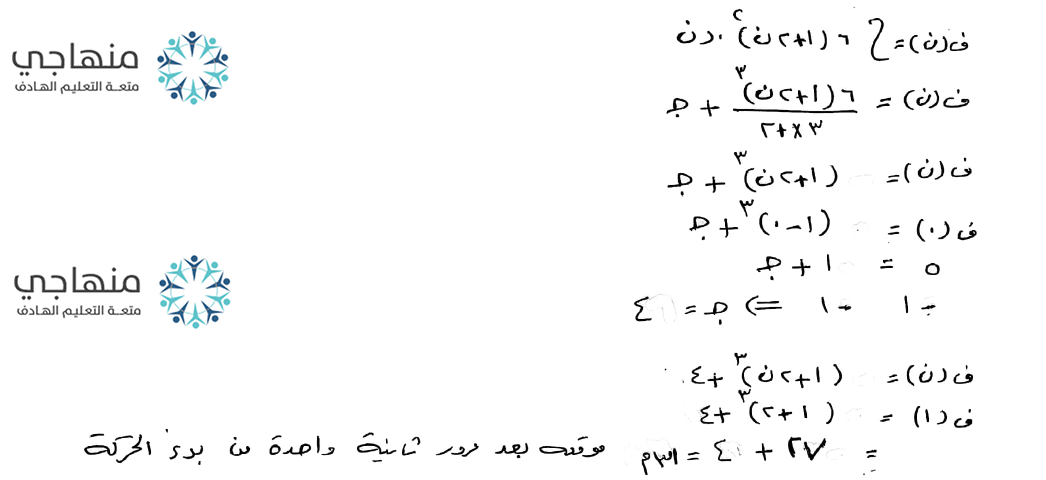 ف(ن) = ∫ ٦(١+٢ن)^٢ . دن
منهاجي
متعـة التعليم الهادف
ف(ن) = ٦(١+٢ن)^٣ / ٣×٢ + جـ
ف(ن) = (١+٢ن)^٣ + جـ
ف(٠) = (١-٠)^٣ + جـ
٥ = ١ + جـ
منهاجي
متعـة التعليم الهادف
-١ -١ => جـ = ٤
ف(ن) = (١+٢ن)^٣ + ٤
ف(١) = (١+٢)^٣ + ٤
= ٢٧ + ٤ = ٣١م موقعه بعد مرور ثانية واحدة من بدء الحركة